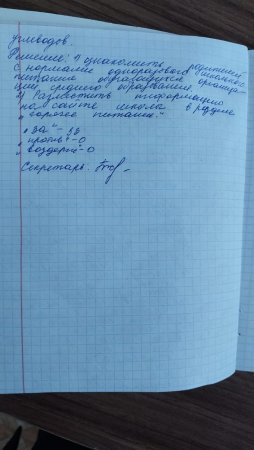 углеводов.
Решение: 1) ознакомить родителей
с нормами одноразового школьного
питания обучающихся организа-
ции среднего образования.
2) Разместить информацию
на сайте школы в разделе
"горячее питание."
"за" -
"против" - 0
"воздерж - 0
Секретарь: